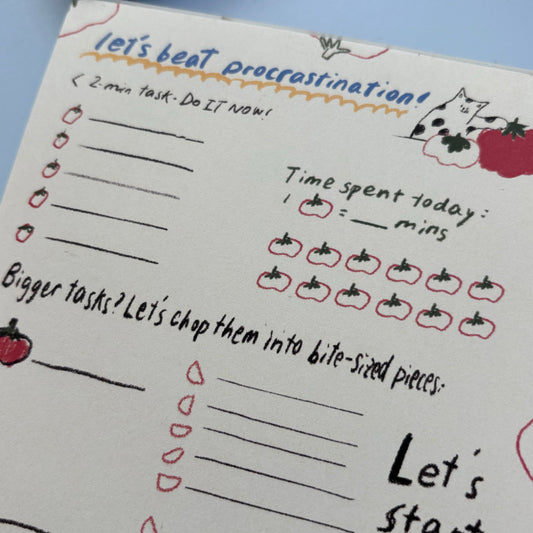 let's beat procrastination!
< 2-min task - Do IT NOW!
Time spent today:
1 = ___ mins
Bigger tasks? Let's chop them into bite-sized pieces.
Let's
start